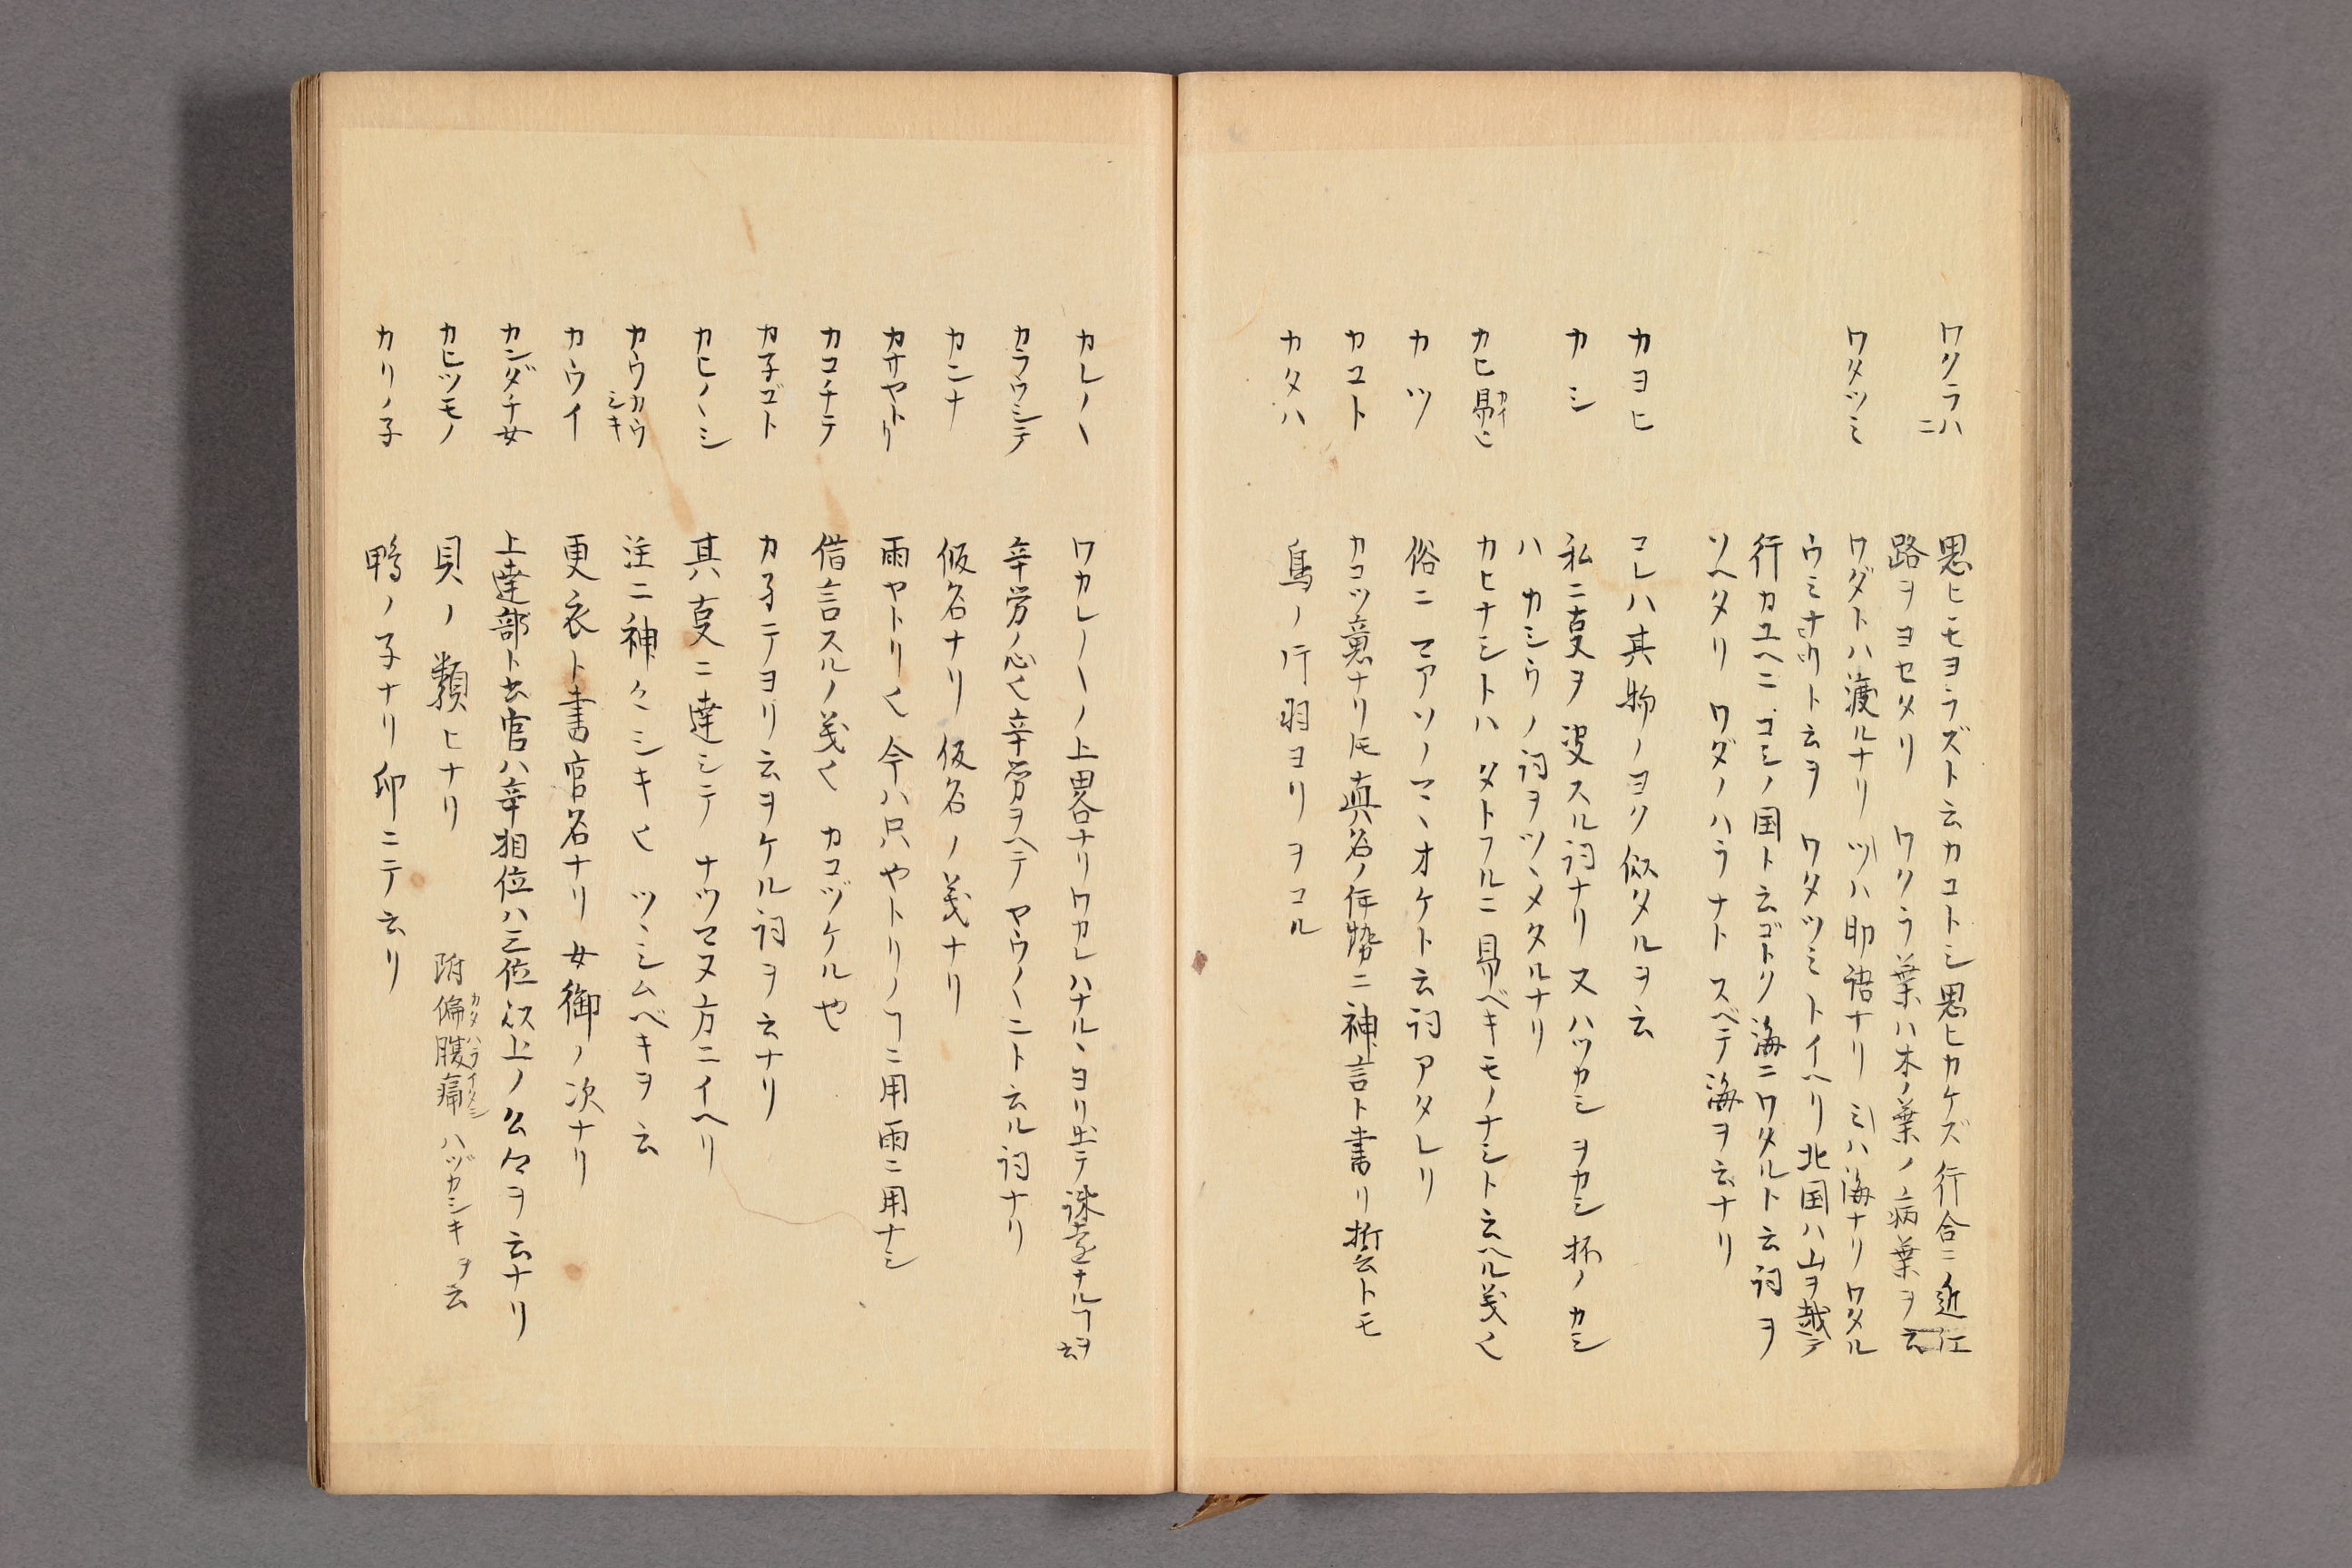 ワクラハニ 思ヒモヨラズト云カコトシ思ヒカケズ行合ニ近江
路ヲヨセタリ ワクラ葉ハ木ノ葉ノ病葉ヲ云
ワタツミ ワダトハ渡ルナリ ツハ助語ナリ ミハ海ナリワタル
ウミナリト云ヲ ワタツミトイヘリ北国ハ山ヲ越テ
行カユヘニコシノ国ト云ゴトク海ニワタルト云詞ヲ
ソヘタリ ワダノハラナトスベテ海ヲ云ナリ
カヨヒ コレハ其物ノヨク似タルヲ云
カシ 私ニ叓ヲ治スル詞ナリ又ハツカシヲカシ抔ノカシ
ハ カシウノ詞ヲツヽメタルナリ
カヒ昜シ カヒナシトハタトフルニ昜ベキモノナシト云ヘル義也
カツ 俗ニマアソノマヽオケト云詞アタレリ
カコト カコツ意ナリ𪜈真名ノ伊勢ニ神言ト書リ誓云トモ
カタハ 鳥ノ片羽ヨリヲコル
カレ〳〵 ワカレ〳〵ノ上畧ナリワカレハナルヽヨリ出テ疎遠ナルヿヲ云
カラウシテ 辛労ノ心也辛労ヲヘテヤウ〳〵ニト云ル詞ナリ
カンナ 仮名ナリ仮名ノ義ナリ
カサヤトリ 雨ヤトリ也今ハ只ヤトリノヿニ用雨ニ用ナシ
カコチテ 借言スルノ義也 カコヅケルや
カ子ゴト カ子テヨリ云ヲケル詞ヲ云ナリ
カヒ〳〵シ 其叓ニ達シテナツマヌ方ニイヘリ
カウカウシキ 注ニ神々シキ也ツヽシムベキヲ云
カウイ 更衣ト書官名ナリ女御ノ次ナリ
カンダチ女 上達部ト云官ハ宰相位ハ三位以上ノ公々ヲ云ナリ
カヒツモノ 貝ノ類ヒナリ 附偏腹痛カタハライタシハヅカシキヲ云
カリノ子 鴨ノ子ナリ卵ニテ云リ